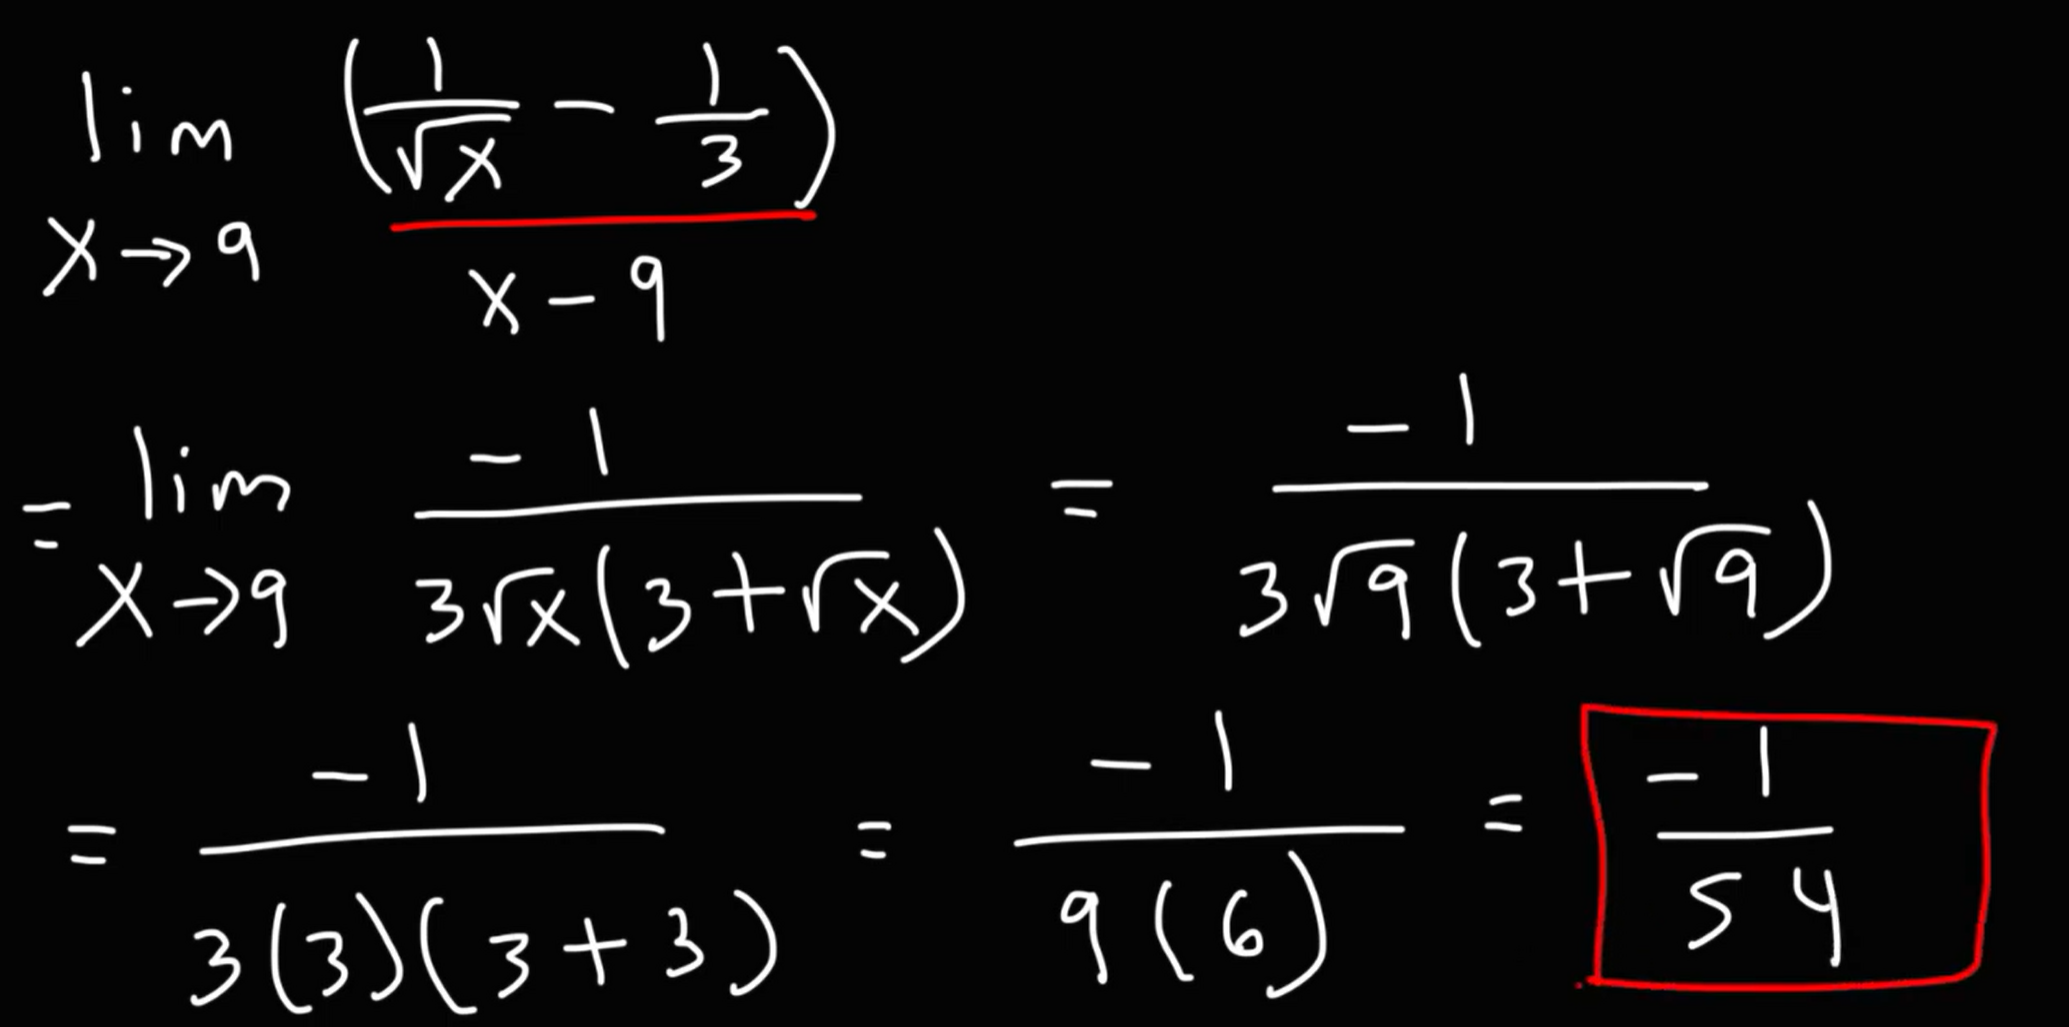 lim x→9 (1/√x − 1/3) / (x − 9)
= lim x→9 −1 / (3√x(3+√x)) = −1 / (3√9(3+√9))
= −1 / (3(3)(3+3)) = −1 / (9(6)) = −1/54